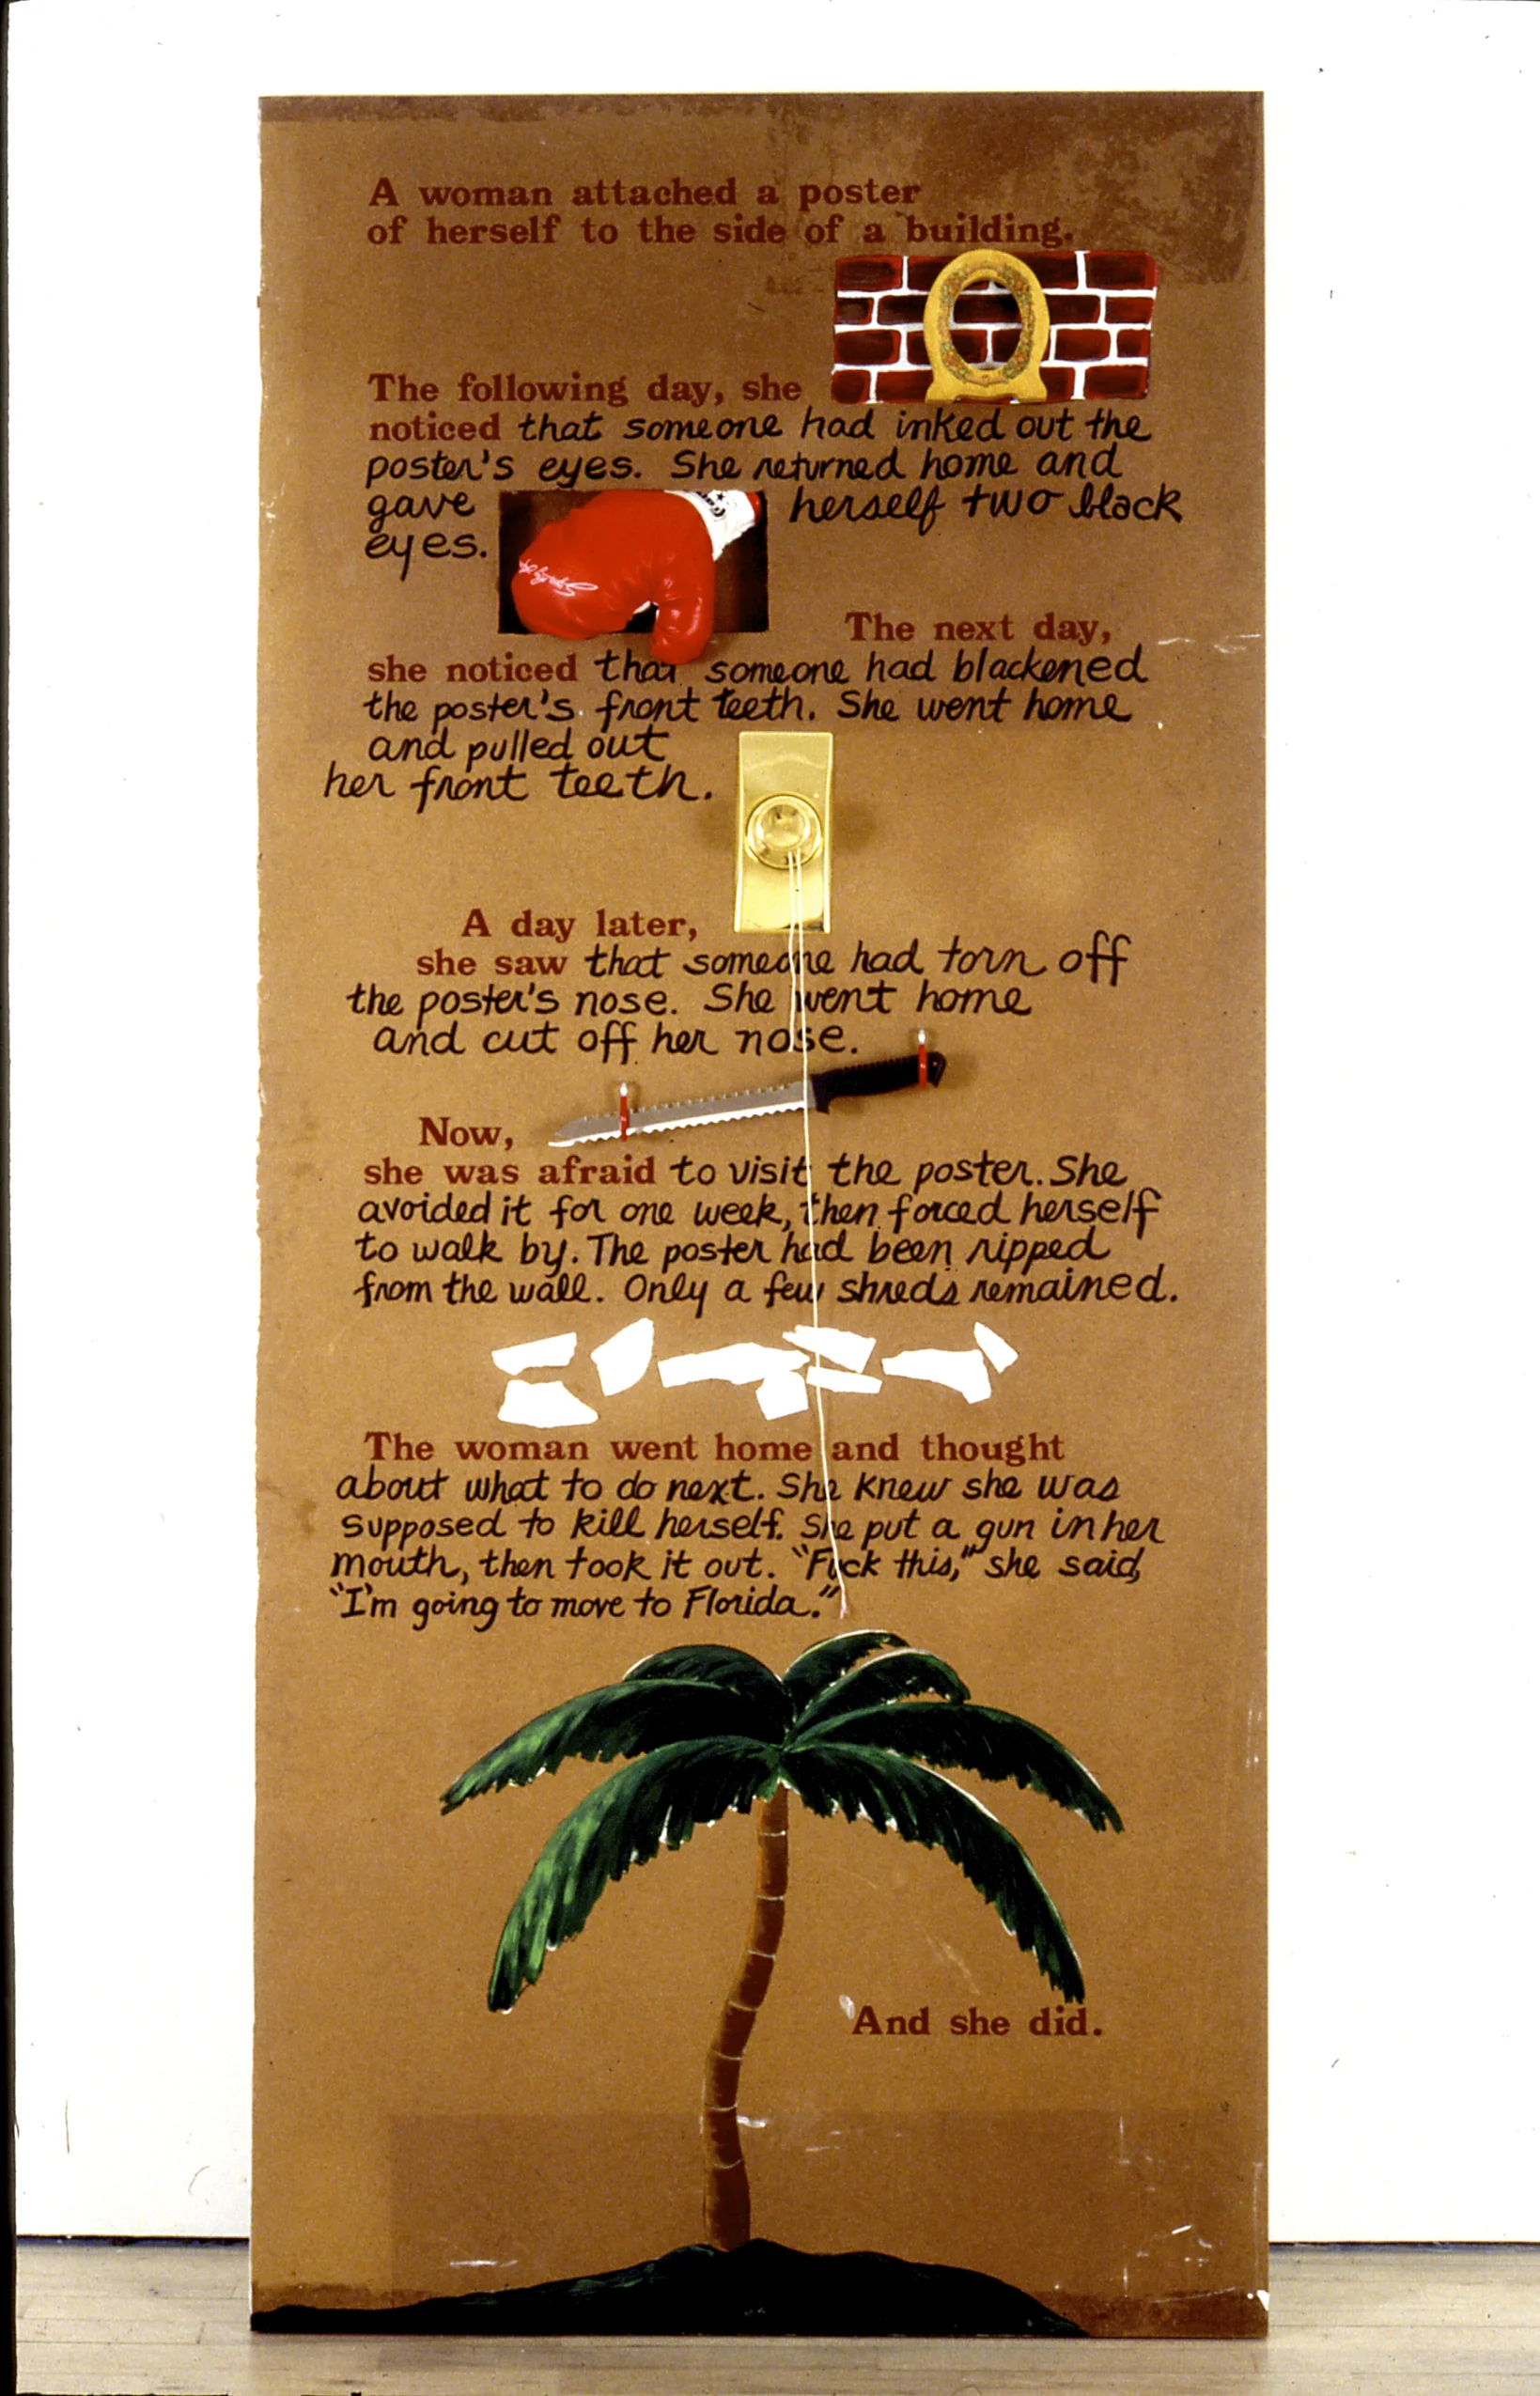 A woman attached a poster
of herself to the side of a building.
The following day, she
noticed that someone had inked out the
poster's eyes. She returned home and
gave herself two black
eyes.
The next day,
she noticed that someone had blackened
the poster's front teeth. She went home
and pulled out
her front teeth.
A day later,
she saw that someone had torn off
the poster's nose. She went home
and cut off her nose.
Now,
she was afraid to visit the poster. She
avoided it for one week, then forced herself
to walk by. The poster had been ripped
from the wall. Only a few shreds remained.
The woman went home and thought
about what to do next. She knew she was
supposed to kill herself. She put a gun in her
mouth, then took it out. "Fuck this," she said,
"I'm going to move to Florida."
And she did.